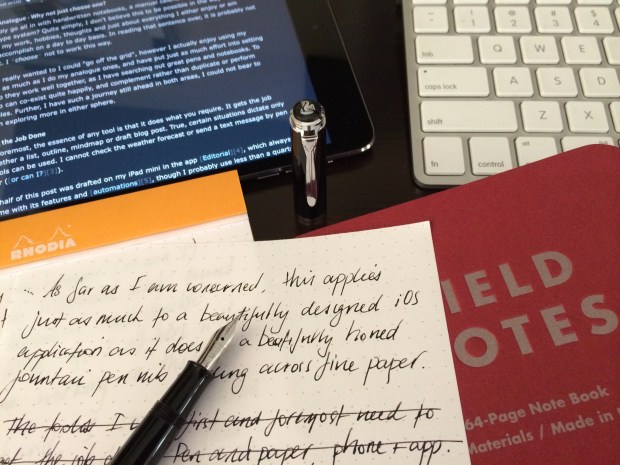 analogue - Why not just choose one?
ply go all in with handwritten notebooks, a manual
type system? Quite simply, I don't believe this to be possible in the
my work, hobbies, thoughts and just about everything I either enjoy or am
accomplish on a day to day basis. In reading that sentence over, it is probably not
I 'choose' to work this way.
really wanted to I could "go off the grid", however I actually enjoy using my
as much as I do my analogue ones, and have put just as much effort into setting
they work well together, as I have searching out great pens and notebooks. To
can co-exist quite happily, and complement rather than duplicate or perform
les. Further, I have such a journey still ahead in both areas, I could not bear to
exploring more in either sphere.
the Job Done
oremost, the essence of any tool is that it does what you require. It gets the job
ther a list, outline, mindmap or draft blog post. True, certain situations dictate only
ols can be used. I cannot check the weather forecast or send a text message by pen
r (or can I?)[3]).
half of this post was drafted on my iPad mini in the app [Editorial][4], which always
me with its features and [automations][5], though I probably use less than a quarter
RHODIA
As far as I am concerned, this applies
just as much to a beautifully designed iOS
application as it does a beatifully tioned
fountain pen nib ng across fine paper.
The tools I first and foremost need to
get the job Pen and paper, phone + app.
tab
Q
W
E
caps lock
A
S
D
shift
Z
X
fn
control
IELD
OTES
64-Page Note Book
Materials / Made in